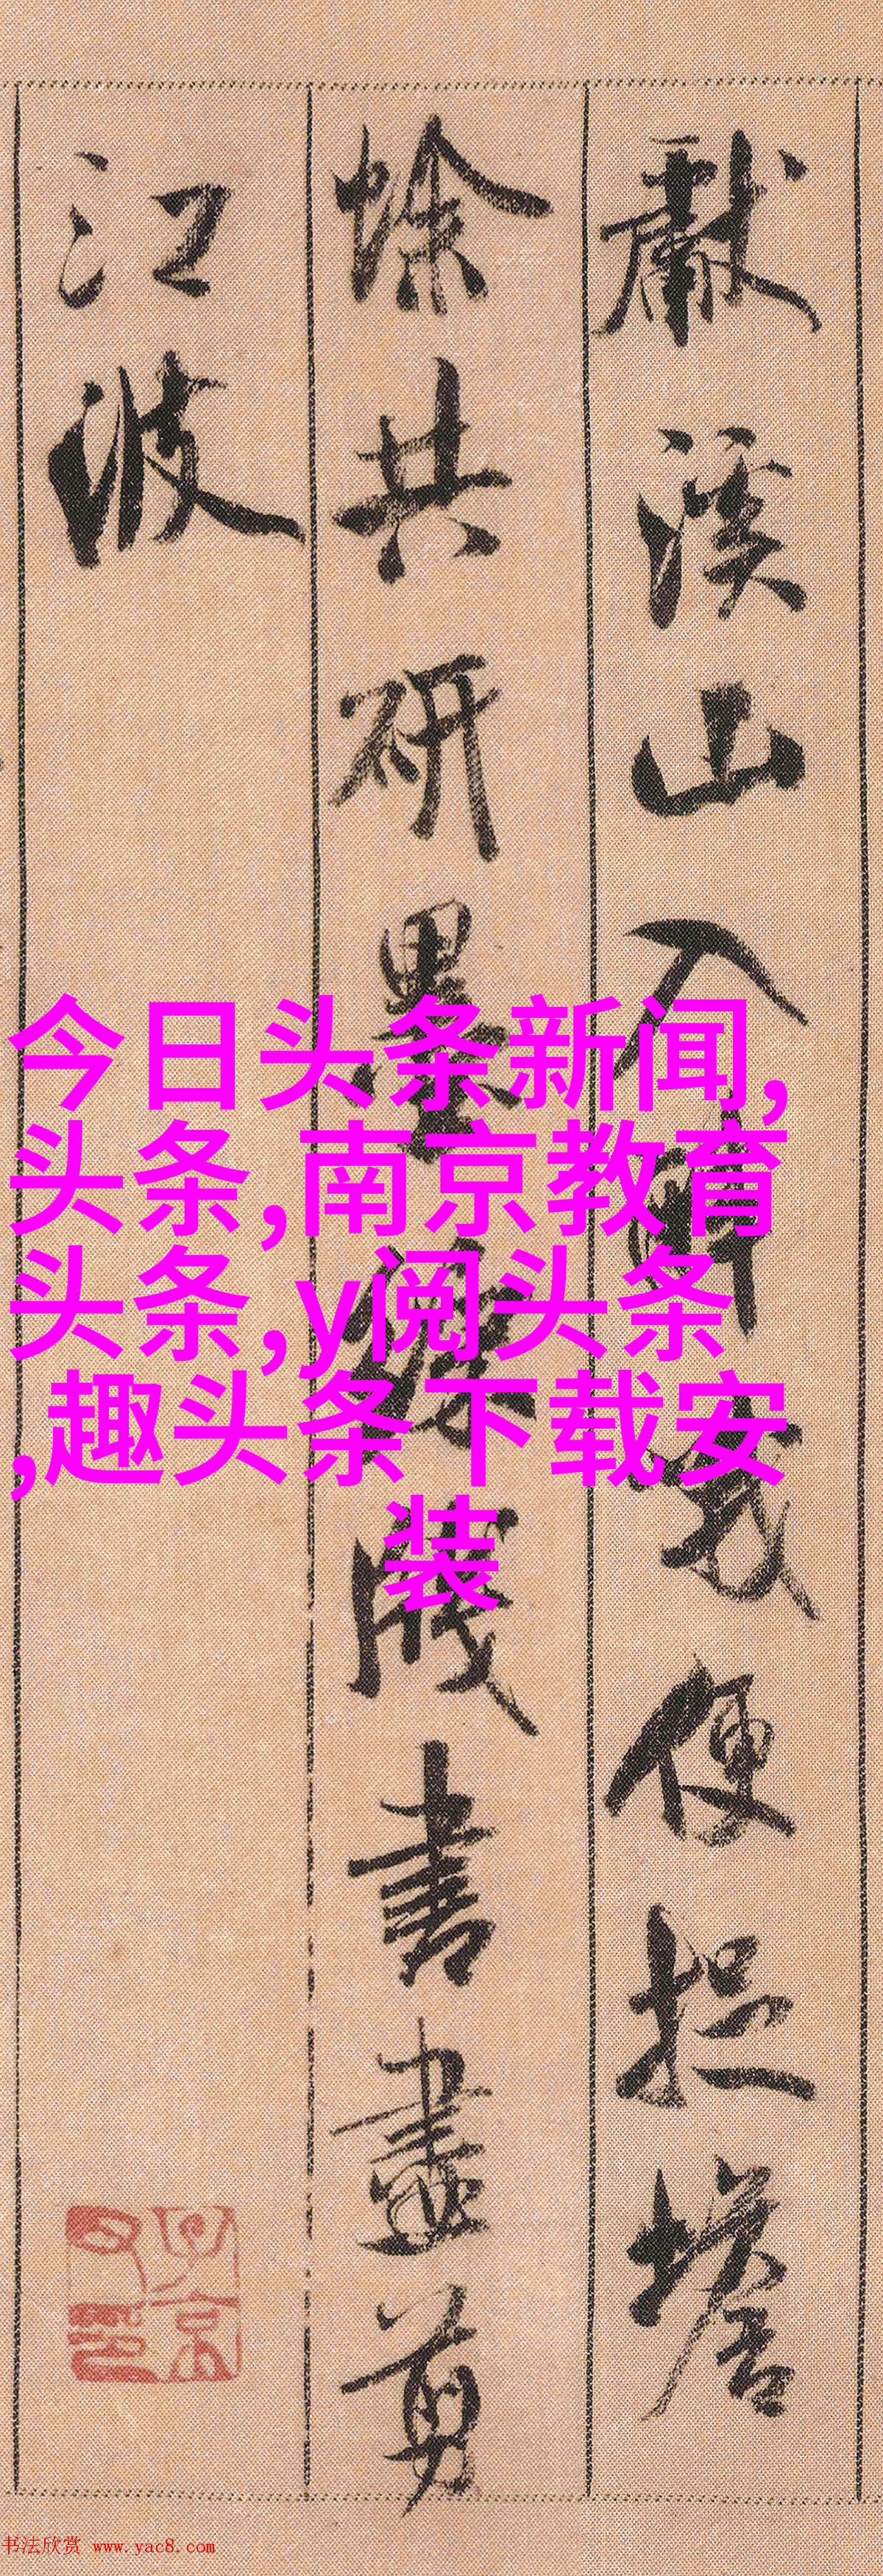 獻溪山入醉哦便捉蟾
蜍共研墨綵牋書盡剪
江波
今日头条新闻,
头条,南京教育
头条,y阅头条
,趣头条下载安
装
书法欣赏 www.yac8.com